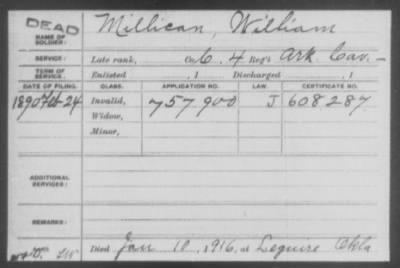 DEAD
NAME OF SOLDIER: Millican, William
SERVICE: Late rank, Co. 4 Reg't Ark. Cav. -
TERM OF SERVICE: Enlisted , 1 Discharged , 1
DATE OF FILING. CLASS. APPLICATION NO. LAW. CERTIFICATE NO.
1890 Feb 24 Invalid, 757900 J 608287
Widow,
Minor,
ADDITIONAL SERVICES:
REMARKS:
Died Jan 10, 1916, at Lequire Okla